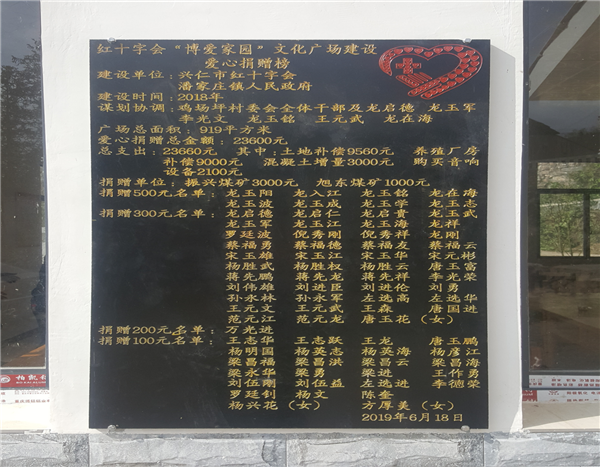 红十字会“博爱家园”文化广场建设
爱心捐赠榜
建设单位：兴仁市红十字会
潘家庄镇人民政府
建设时间：2018年
谋划协调：鸡场坪村委会全体干部及龙启德 龙玉军
李光文 龙玉铭 王元武 龙在海
广场总面积：919平方米
爱心捐赠总金额：23600元
总支出：23660元 其中：土地补偿9560元 养殖厂房
补偿9000元 混凝土增量3000元 购买音响
设备2100元
捐赠单位：振兴煤矿3000元 旭东煤矿1000元
捐赠500元名单：龙玉阳 龙入江 龙玉铭 龙在海
龙玉波 龙玉成 龙玉学 龙玉志
捐赠300元名单：龙启德 龙启仁 龙启贵 龙玉武
龙玉军 龙玉江 龙玉海 龙祥
罗廷波 倪秀刚 倪秀祥 龙刚
蔡福勇 蔡福德 蔡福友 蔡福云
宋玉雄 宋玉江 宋玉华 宋元彬
杨胜武 杨胜权 杨胜云 唐玉富
蒋先鹏 蒋先龙 蒋先祥 李光荣
刘伟雄 刘进臣 刘进伦 刘勇
孙永林 孙永军 左选高 左选华
王元文 王元武 王森 唐国进
范元江 范元龙 唐玉花（女）
捐赠200元名单：万光进
捐赠100元名单：王志华 王志跃 王龙 唐玉鹏
杨明国 杨英志 杨英海 杨彦江
梁昌福 梁昌洪 梁云 梁昌海
梁永华 梁勇 梁进 王作勇
刘伍刚 刘伍益 左选进 李德荣
罗廷钊 杨文 陈奎
杨兴花（女） 方厚美（女）
2019年6月18日